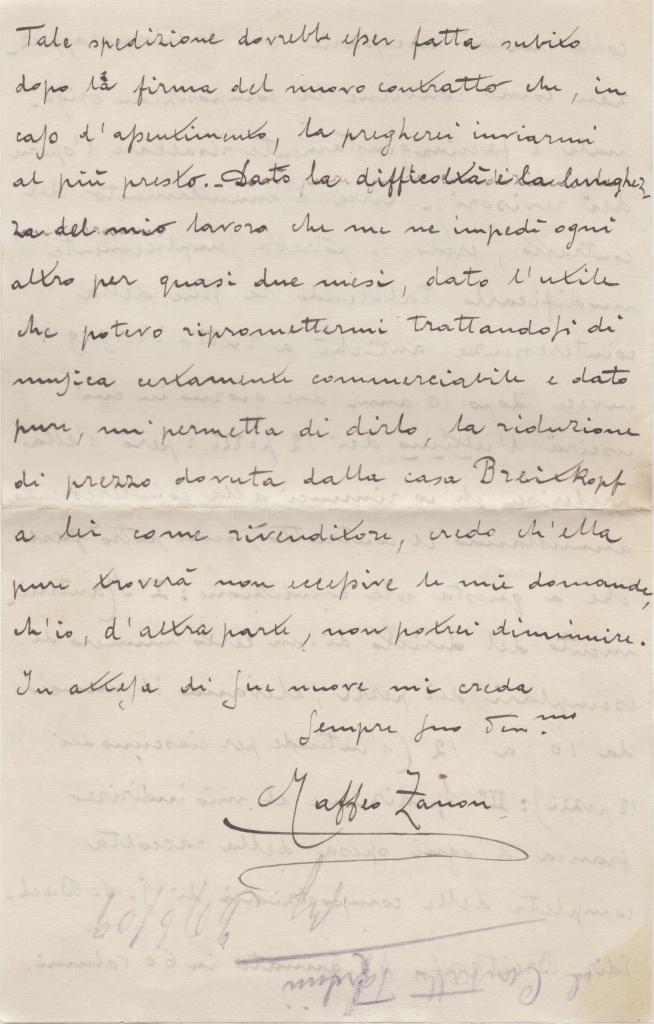 Tale spedizione dovrebbe esser fatta subito
dopo la firma del nuovo contratto che, in
caso d'assentimento, la pregherei inviarmi
al più presto. - Dato la difficoltà e la lunghez-
za del mio lavoro che me ne impedì ogni
altro per quasi due mesi, dato l'utile
che potevo ripromettermi trattandosi di
musica certamente commerciabile e dato
pure, mi permetta di dirlo, la riduzione
di prezzo dovuta dalla casa Breitkopf
a lei come rivenditore, credo ch'ella
pure troverà non eccessive le mie domande,
ch'io, d'altra parte, non potrei diminuire.
In attesa di sue nuove mi creda
sempre suo Dev.mo
Maffeo Zanon